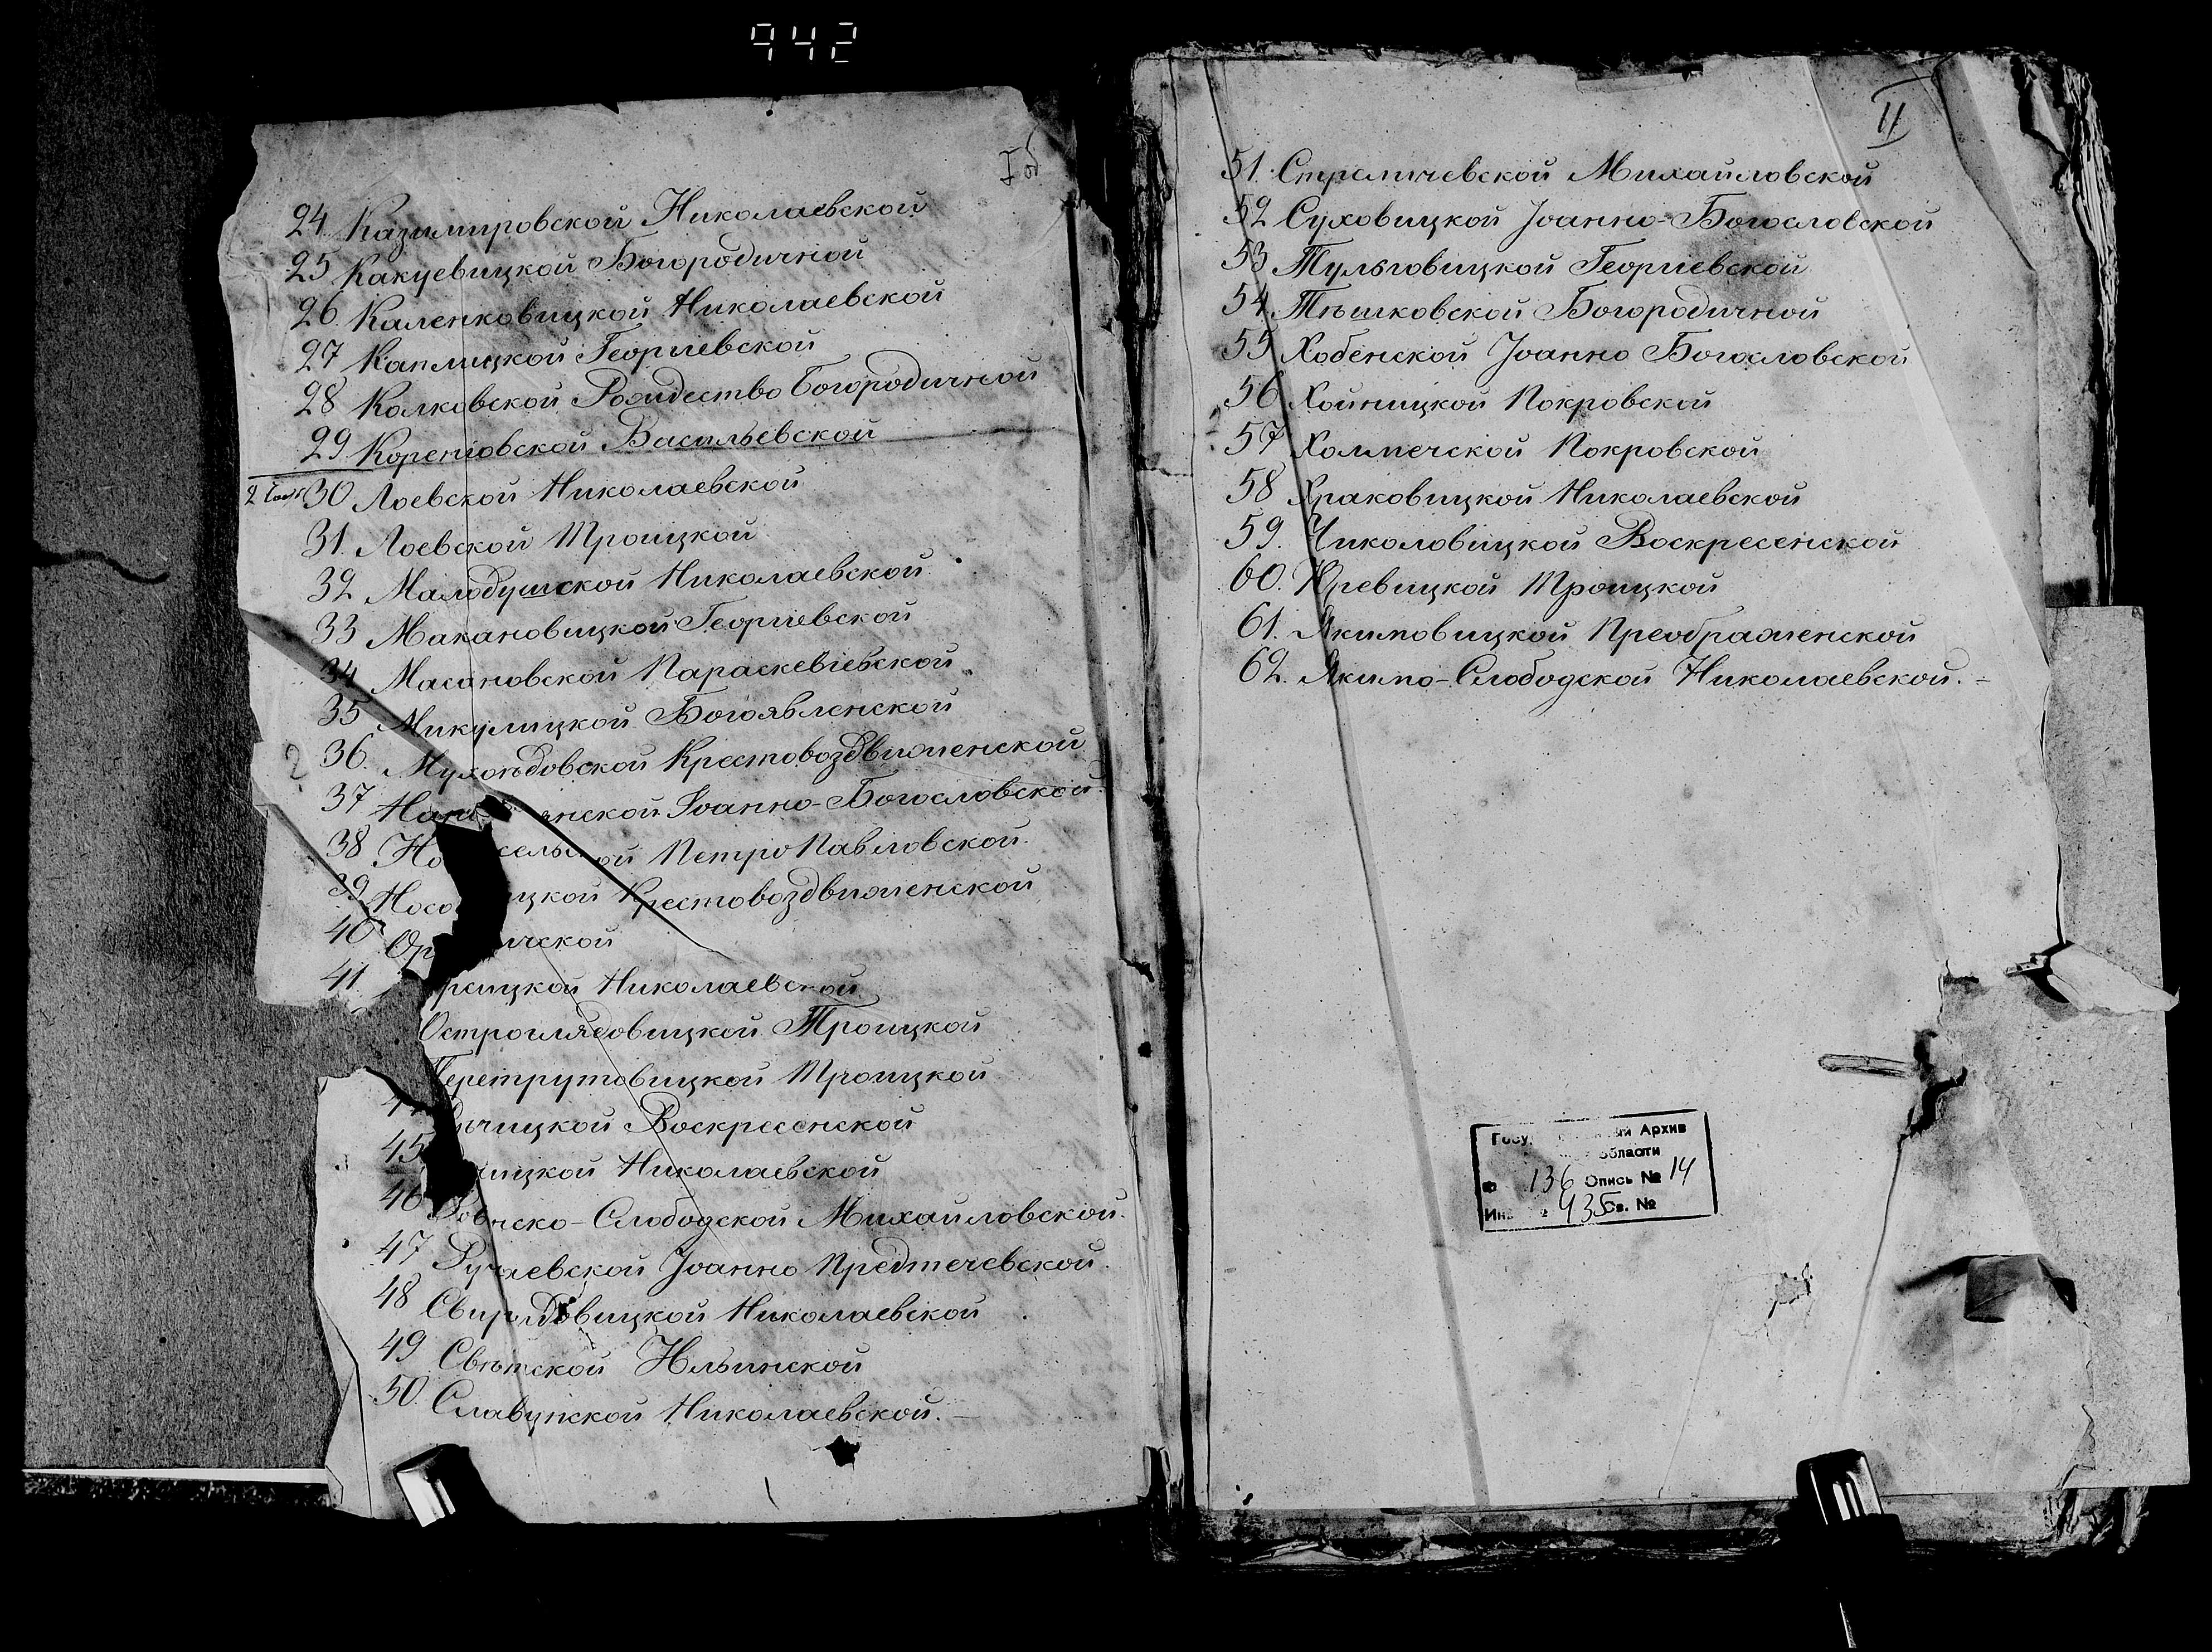 942
Iоб
24 Казимировской Николаевской
25 Какуевицкой Богородичной
26. Каленковицкой Николаевской
27 Каплицкой Георгіевской
28 Колковской Рождество Богородичной
29. Кореневской Васильевской
2 Часть 30 Лоевской Николаевской
31. Лоевской Троицкой
32 Малодушской Николаевской
33 Макановицкой Георгіевской
34 Масановской Параскевіевской
35 Микулицкой Богоявленской
? 36. Мухоѣдовской Крестовоздвиженской
37 нской Іоанно-Богословской
38 Но сельской ПетроПавловской
39 Носо ицкой Крестовоздвиженской
40 Ор ичской
41 рсицкой Николаевской
Остроглядовицкой Троицкой
Перетрутовицкой Троицкой
ѣчицкой Воскресенской
45 ицкой Николаевской
46 ско-Слободской Михайловской.
47 Ручаевской Іоанно Предтечевской.
48 Свиридовицкой Николаевской
49 Свѣтской Ильинской
50. Славутской Николаевской. –
II
51. Стреличевской Михайловской
52 Суховицкой Іоанно-Богословской
53 Тульговицкой Георгіевской
54. Тѣшковской Богородичной
55 Хобенской Іоанно Богословской
56 Хойницкой Покровской
57 Холмечской Покровской
58 Храковицкой Николаевской
59. Чиколовицкой Воскресенской
60. Юревицкой Троицкой
61. Якимовицкой Преображенской
62. Якимо-Слободской Николаевской. –
Госу ный Архив
области
Ф 136 Опись № 14
Ин № 935 Св. №